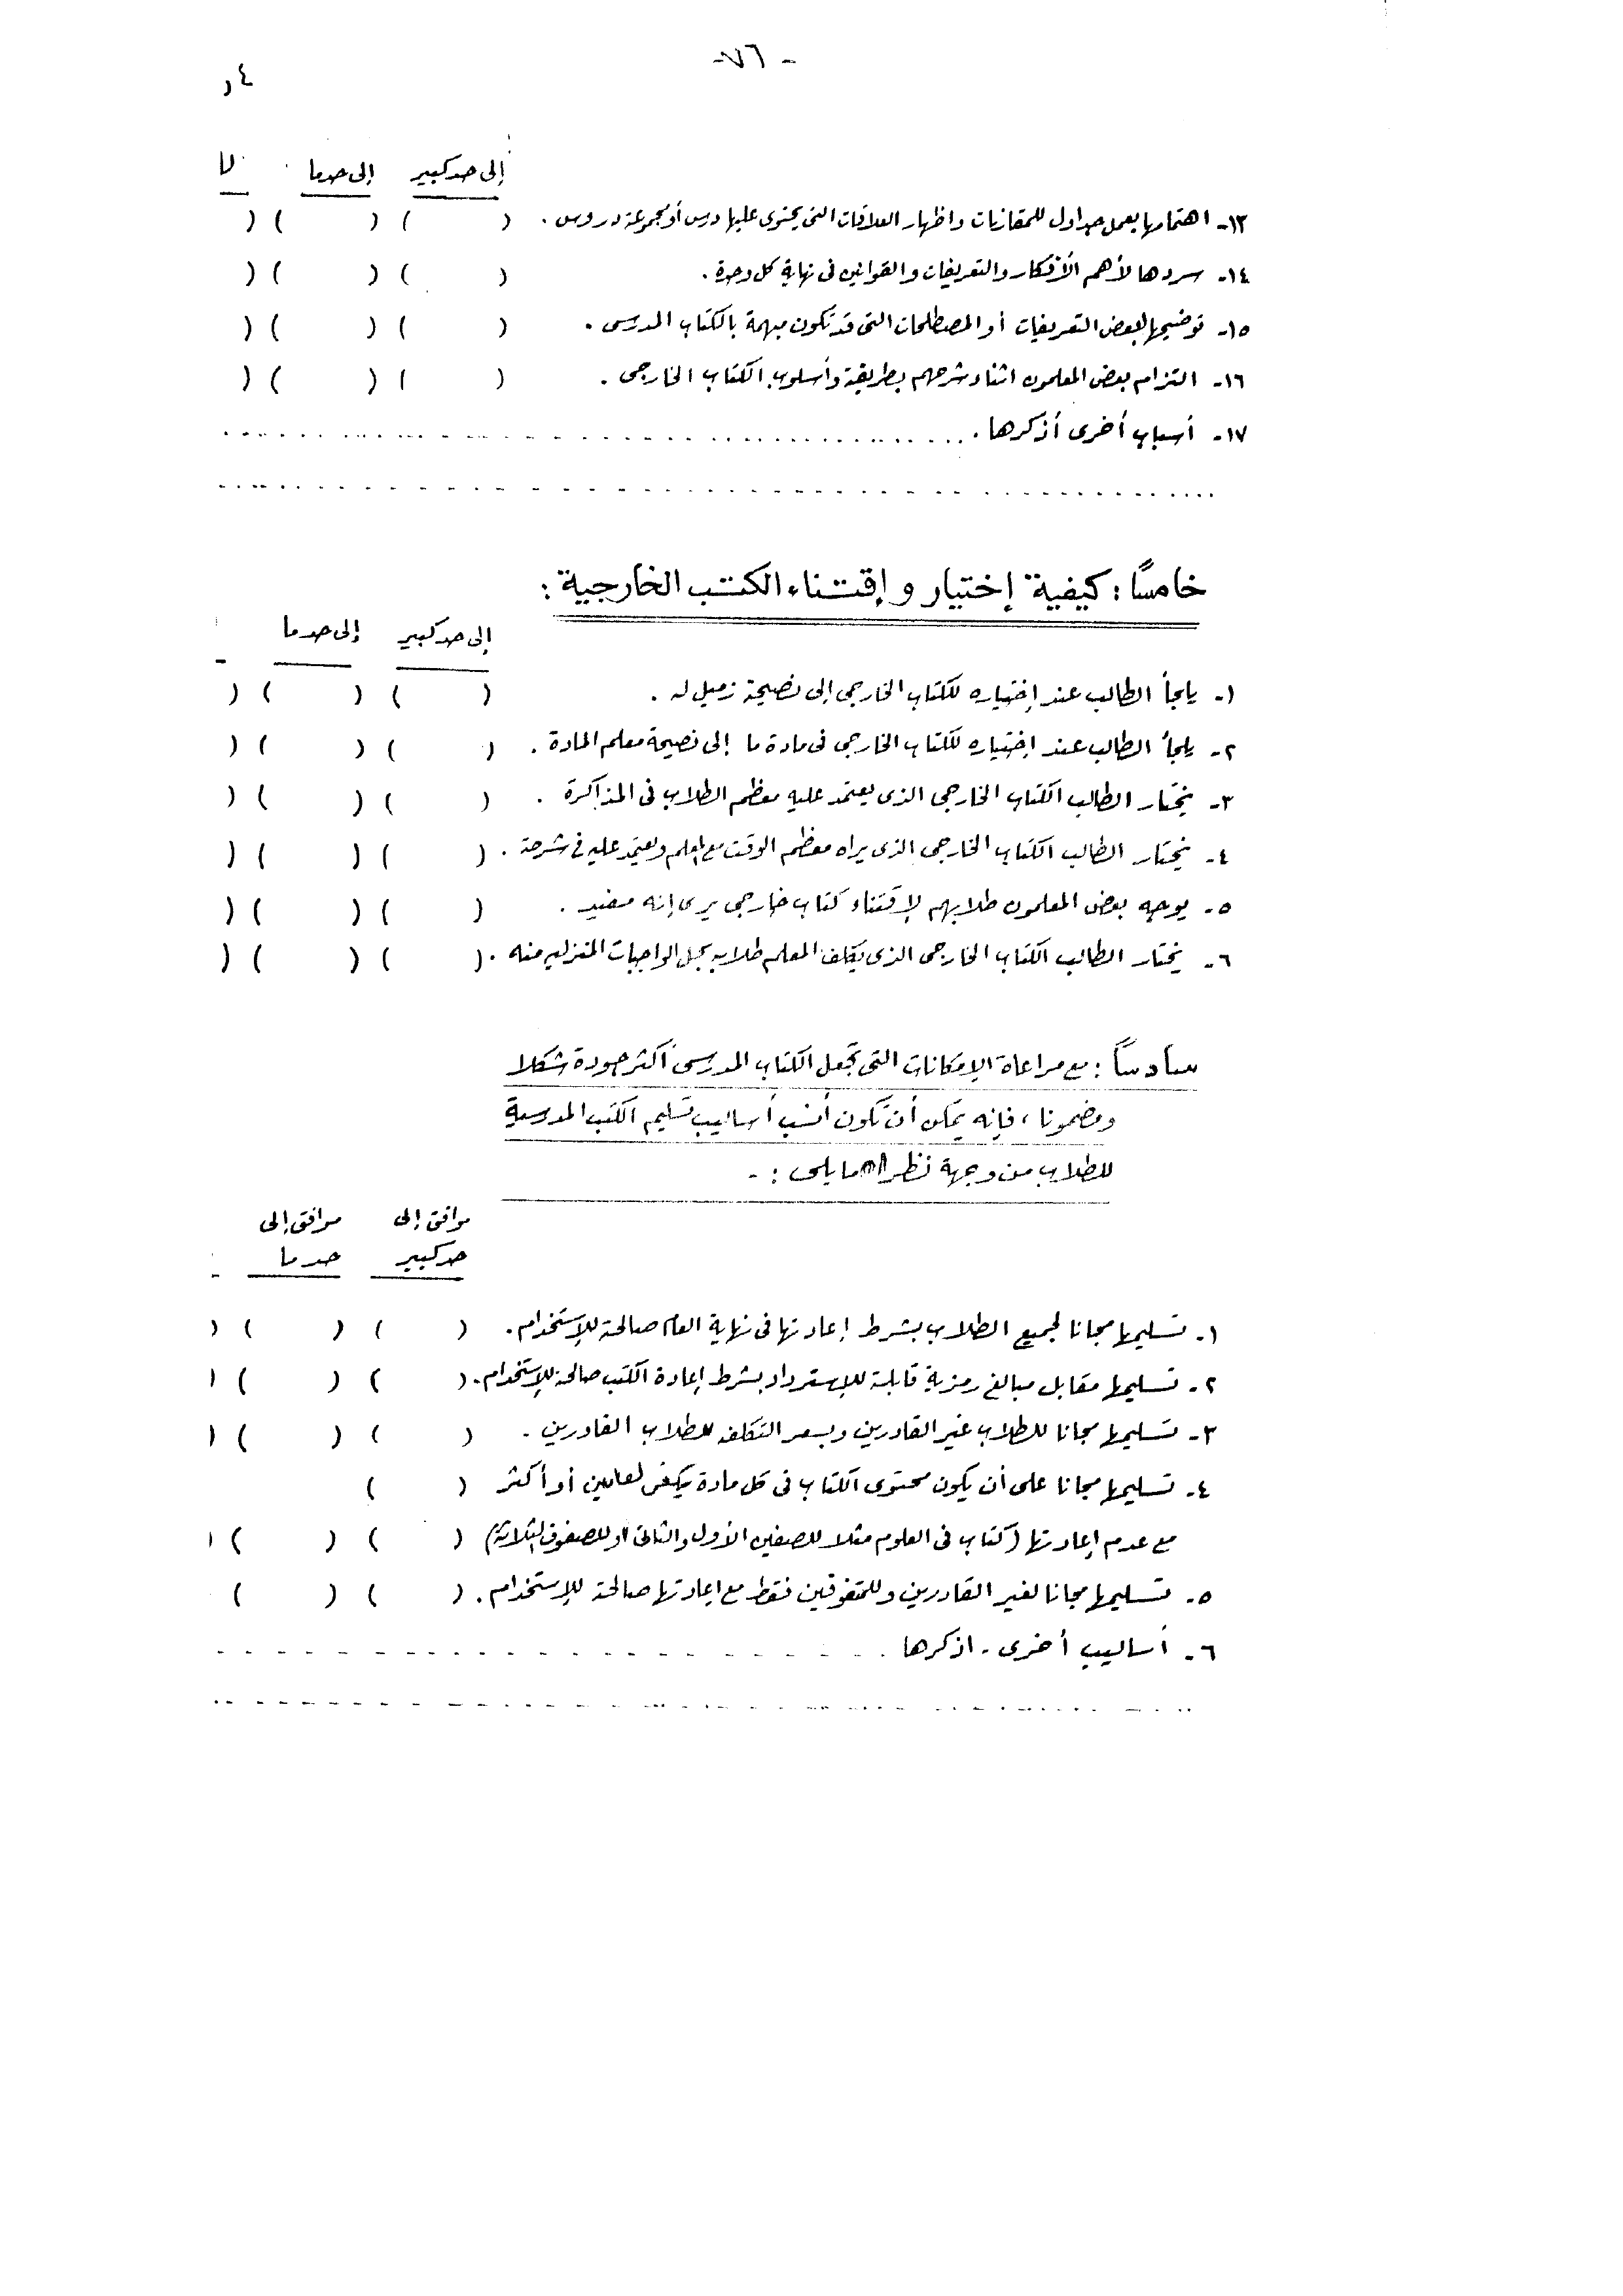 - ٧٦ -
٤
إلى حد كبير   إلى حد ما   لا
١٣- اهتمامها بعمل جداول للمقارنات واظهار العلاقات التى يحتوى عليها درس أو مجموعة دروس . (   ) (   ) (
١٤- سردها لأهم الأفكار والتعريفات والقوانين فى نهاية كل وحدة . (   ) (   ) (
١٥- توضيحها لبعض التعريفات أو المصطلحات التى قد تكون مبهمة بالكتاب المدرسى . (   ) (   ) (
١٦- التزام بعض المعلمون اثناء شرحهم بطريقة وأسلوب الكتاب الخارجى . (   ) (   ) (
١٧- أسباب أخرى أذكرها . ..............................
..............................
خامسًا : كيفية إختيار و إقتناء الكتب الخارجية :
إلى حد كبير   إلى حد ما
١- يلجأ الطالب عند إختياره للكتاب الخارجى إلى نصيحة زميل له . (   ) (   ) (
٢- يلجأ الطالب عند إختياره للكتاب الخارجى فى مادة ما إلى نصيحة معلم المادة . (   ) (   ) (
٣- يختار الطالب الكتاب الخارجى الذى يعتمد عليه معظم الطلاب فى المذاكرة . (   ) (   ) (
٤- يختار الطالب الكتاب الخارجى الذى يراه معظم الوقت مع المعلم ويعتمد عليه فى شرحه . (   ) (   ) (
٥- يوجه بعض المعلمون طلابهم لإقتناء كتاب خارجى يرى إنه مفيد . (   ) (   ) (
٦- يختار الطالب الكتاب الخارجى الذى يكلف المعلم طلابه بحل الواجبات المنزليه منه . (   ) (   ) (
سادسًا : مع مراعاة الإمكانات التى تجعل الكتاب المدرسى أكثر جودة شكلا
ومضمونا ، فإنه يمكن أن تكون أنسب أساليب تسليم الكتب المدرسية
للطلاب من وجهة نظر ما يلى : -
موافق إلى   موافق إلى
حد كبير   حد ما
١- تسليمها مجانا لجميع الطلاب بشرط إعادتها فى نهاية العام صالحة للإستخدام . (   ) (   ) (
٢- تسليمها مقابل مبالغ رمزية قابلة للإسترداد بشرط إعادة الكتب صالحة للإستخدام . (   ) (   ) (
٣- تسليمها مجانا للطلاب غير القادرين وبسعر التكلفه للطلاب القادرين . (   ) (   ) (
٤- تسليمها مجانا على أن يكون محتوى الكتاب فى كل مادة يكفى لعامين أو أكثر (   )
مع عدم إعادتها (كتاب فى العلوم مثلا للصفين الأول والثانى أو للصفوف الثلاثة) (   ) (   ) (
٥- تسليمها مجانا لغير القادرين وللمتفوقين فقط مع إعادتها صالحة للإستخدام . (   ) (   )
٦- أساليب أخرى - اذكرها ..............................
..............................